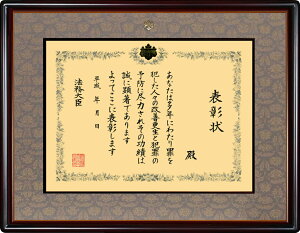 表彰状
殿
あなたは多年にわたり罪を
犯した人々の改善更生と犯罪の
予防に尽力されその功績は
誠に顕著であります
よってここに表彰します
平成 年 月 日
法務大臣